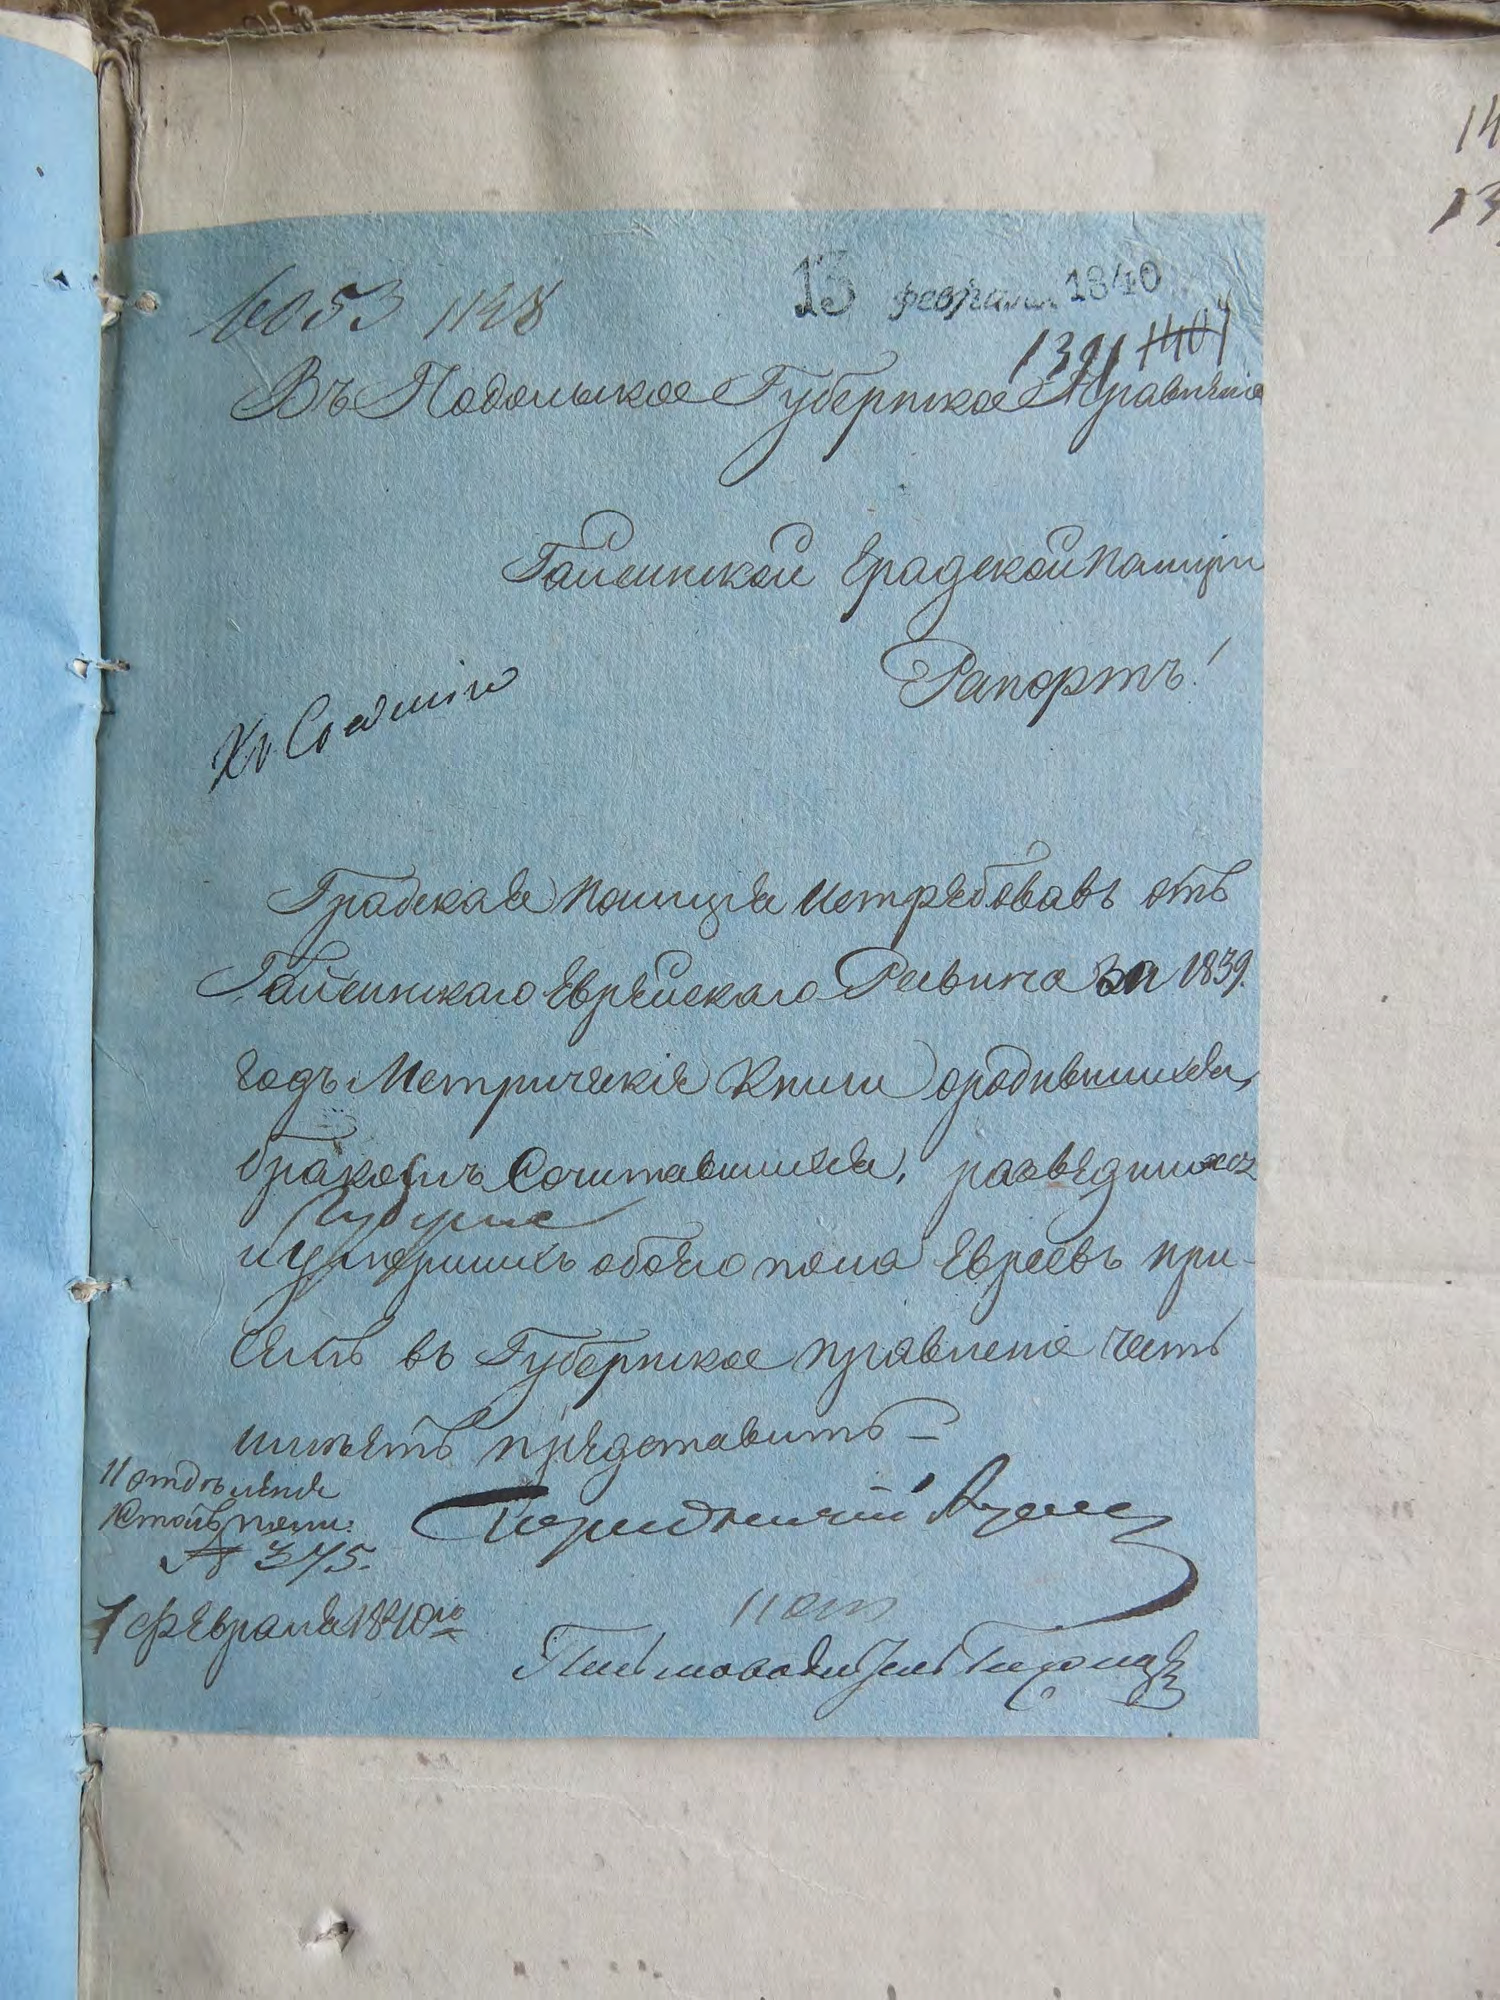 14
13
6053 1148
13 февраля 1840
1391 1401
Въ Подольское Губернское Правленіе
Гайсинской Градской Полиціи
Рапортъ!
Градская Полиція истребовавъ отъ
Гайсинскаго Еврейскаго Раввина за 1839.
годъ Метрическія Книги ородившихся,
бракомъ Сочитавшихся, разведшихся
и умершихъ обоего пола Евреевъ при
семъ въ Губернское правленіе честь
имѣетъ представить
II отдѣленія
№ 375.
7 Февраля 1840го
Городничій
Письмоводитель